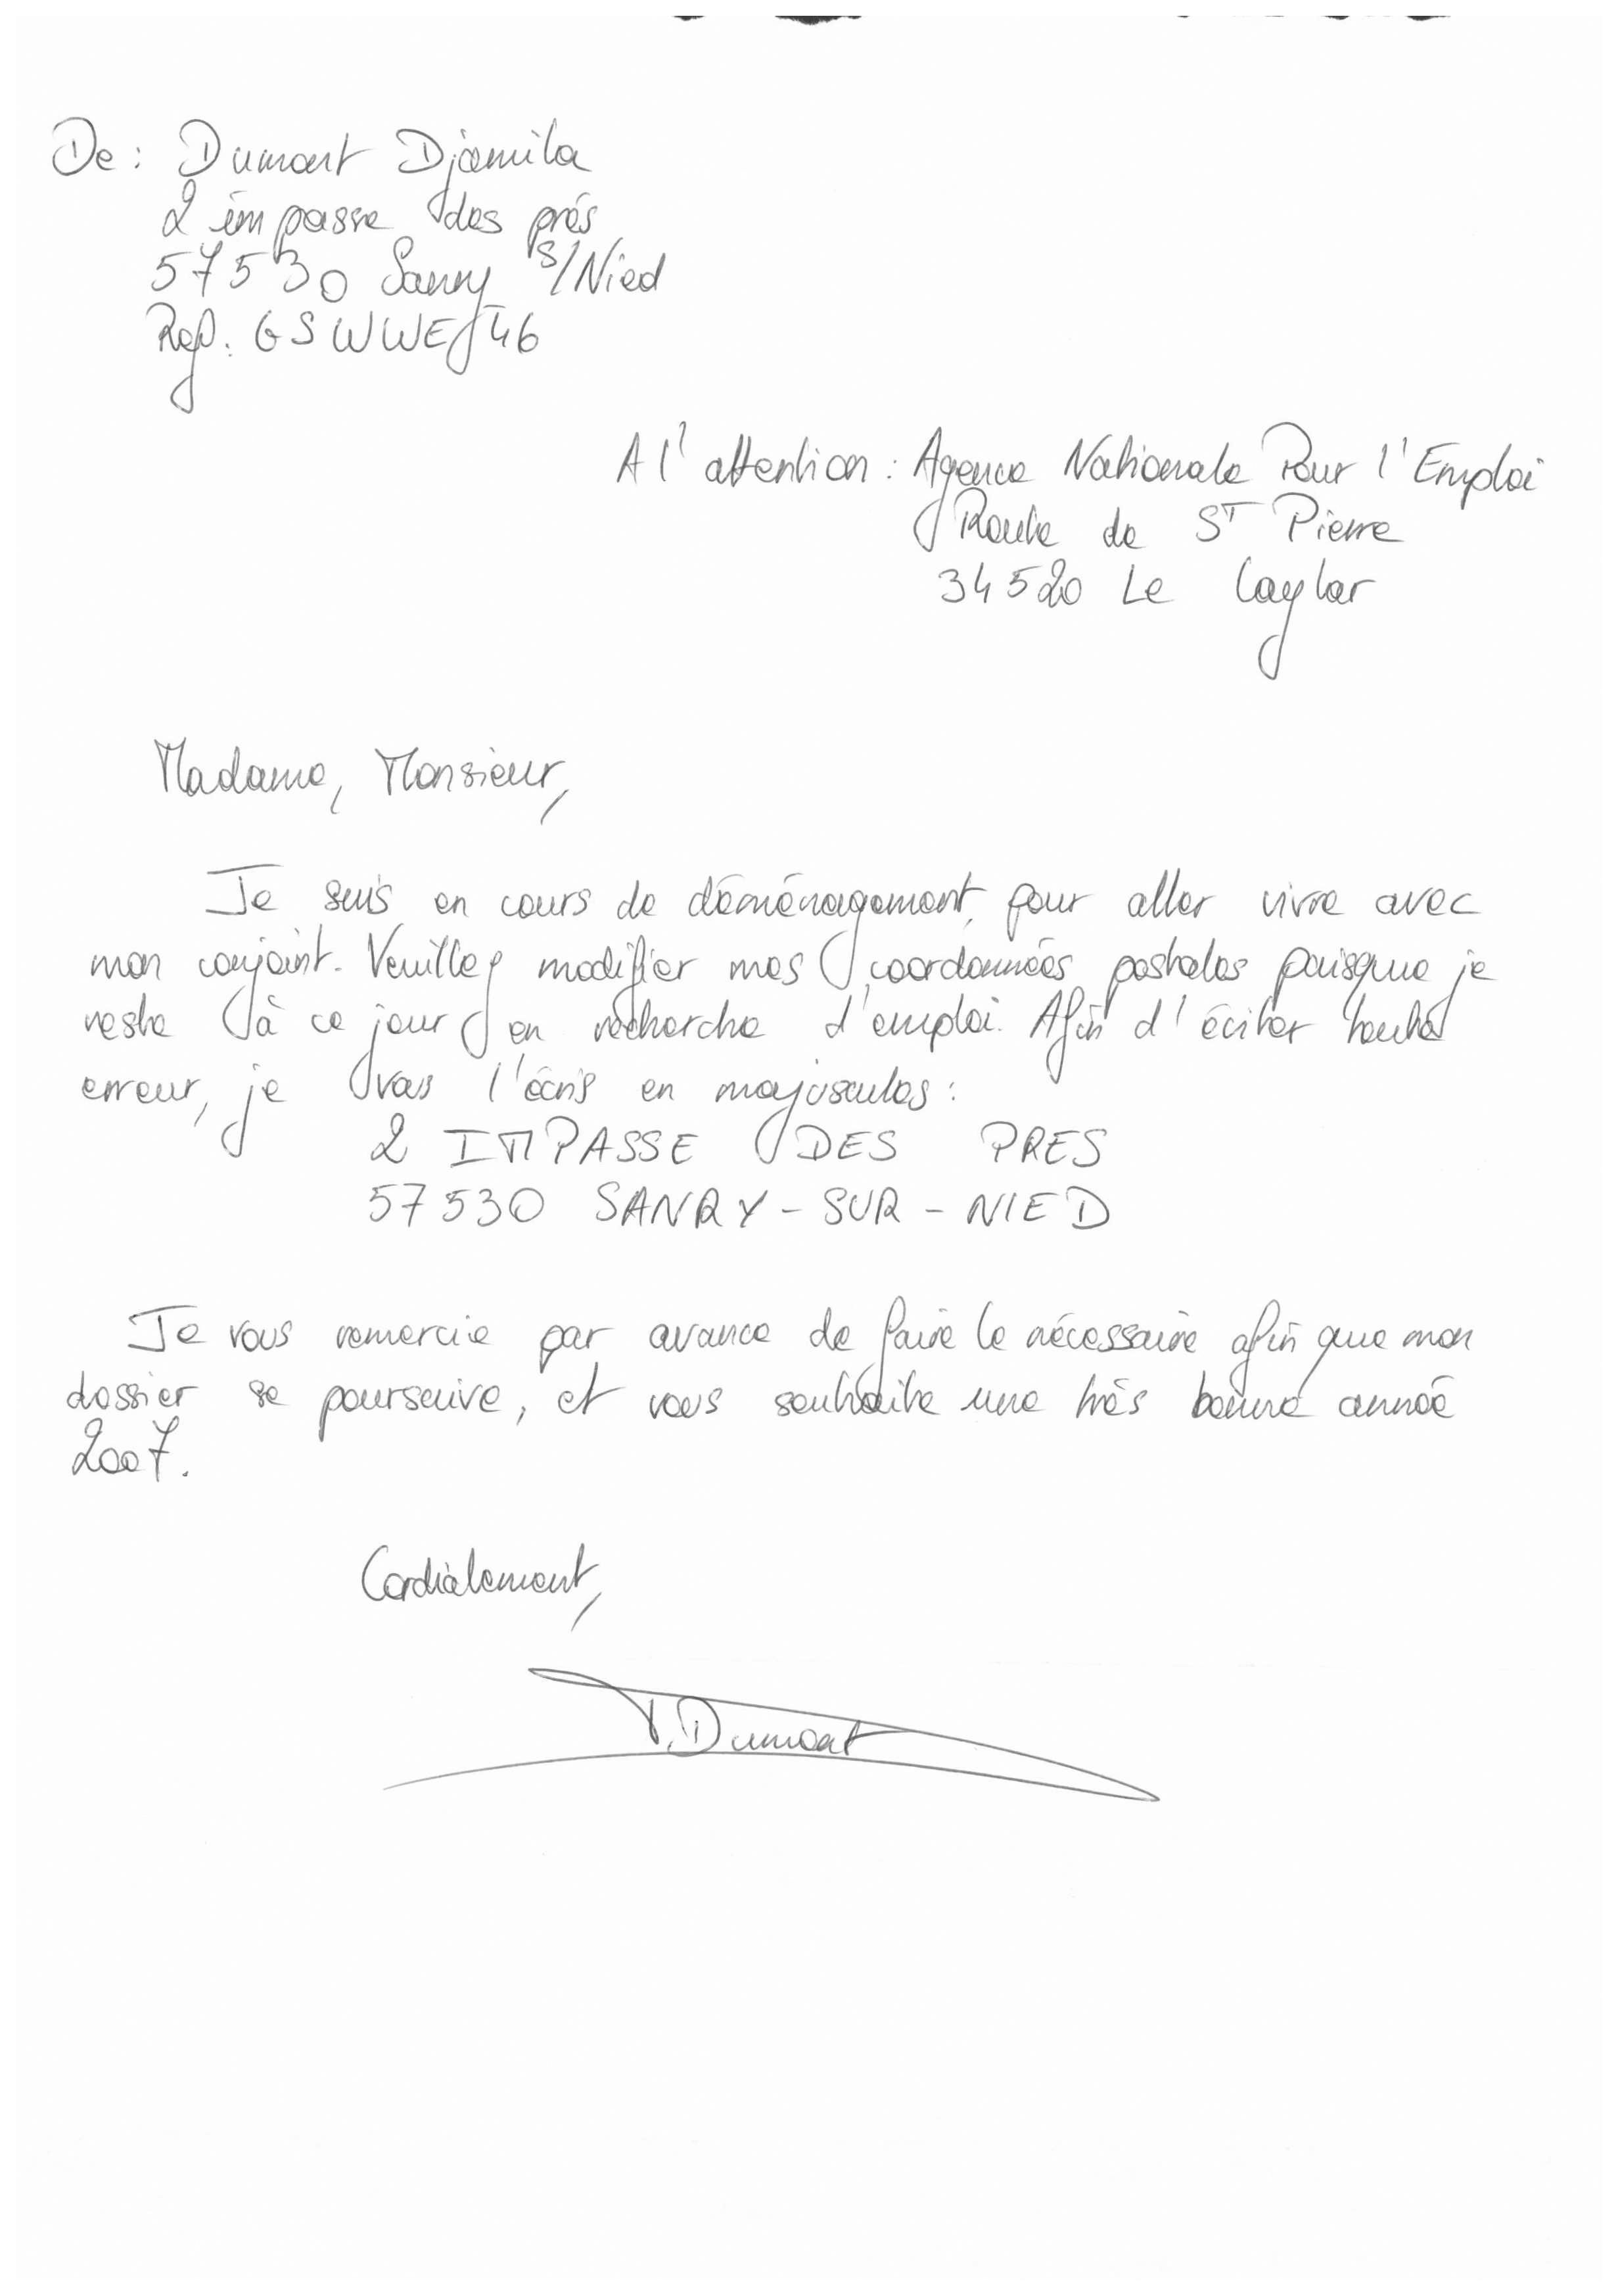 De : Dumont Djamila
2 impasse des prés
57530 Sanry s/Nied
Réf. : GSWWEJ46
A l'attention : Agence Nationale Pour l'Emploi
Route de ST Pierre
34520 Le Caylar
Madame, Monsieur,
Je suis en cours de déménagement, pour aller vivre avec
mon conjoint. Veuillez modifier mes coordonnées postales puisque je
reste à ce jour en recherche d'emploi. Afin d'éciter toute
erreur, je vous l'écris en majuscules :
2 IMPASSE DES PRES
57530 SANRY-SUR-NIED
Je vous remercie par avance de faire le nécessaire afin que mon
dossier se poursuive, et vous souhaite une très bonne année
2007.
Cordialement,
Dumont